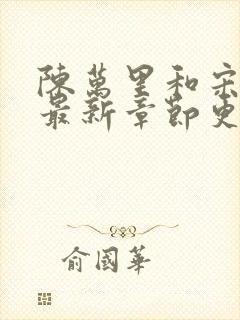 陳萬里和宋
最新章節更
俞國華